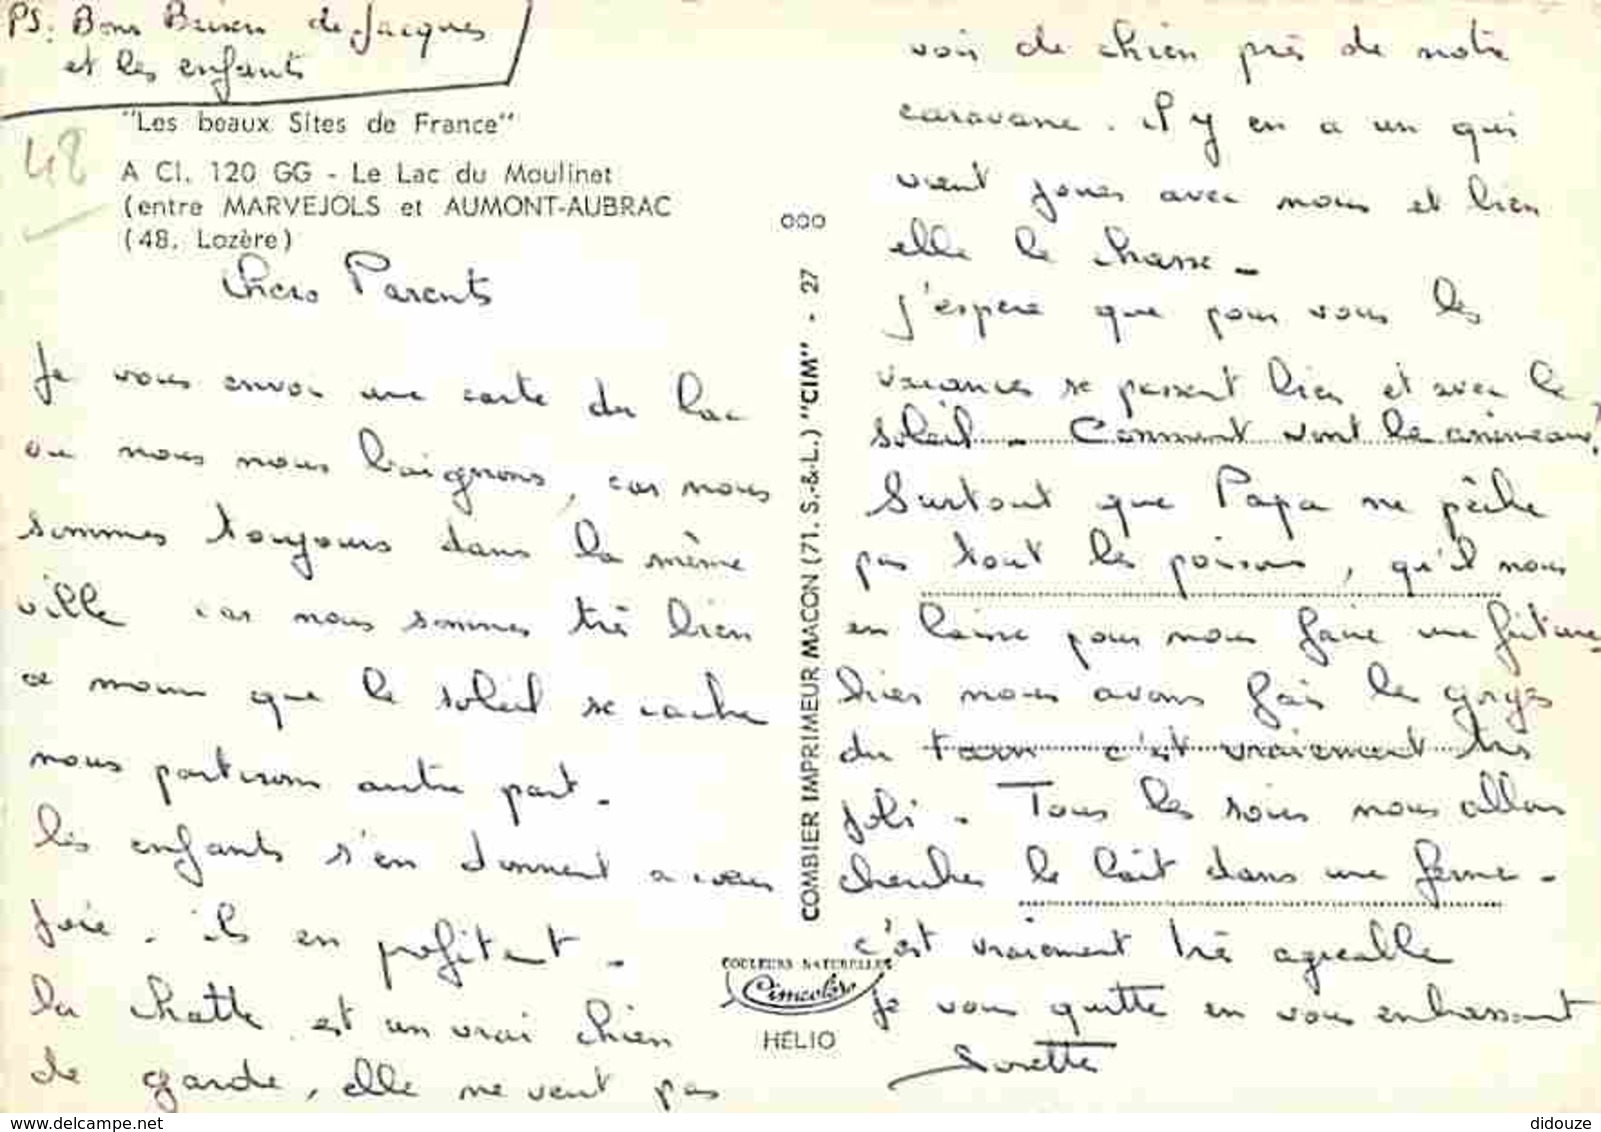 PS: Bons Baisers de Jacques
et les enfants
"Les beaux Sites de France"
48
A CI. 120 GG - Le Lac du Moulinet
(entre MARVEJOLS et AUMONT-AUBRAC
(48. Lozère)
Chers Parents
Je vous envoi une carte du lac
ou nous nous baignons, car nous
sommes toujours dans la même
ville car nous sommes très bien
a moins que le soleil se cache
nous partirons autre part.
Les enfants s'en donnent a coeur
joie. ils en profitent -
la chatte est un vrai chien
de garde, elle ne veut pas
000
COMBIER IMPRIMEUR MACON (71. S.-&-L.) "CIM" - 27
COULEURS NATURELLES
Cimcolor
HELIO
voir de chien près de notre
caravane. il y en a un qui
vient jouer avec nous et bien
elle le chasse -
J'espère que pour vous les
vacances se passent bien et avec le
soleil - Comment vont les animaux?
Surtout que Papa ne pêche
pas tout les poissons, qu'il nous
en laisse pour nous faire une friture
hier nous avons fais les gorges
du tarn c'est vraiement très
joli - Tous les soirs nous allons
chercher le lait dans une ferme -
c'est vraiement très agreable
Je vous quitte en vous enbrassant
Suzette
didouze